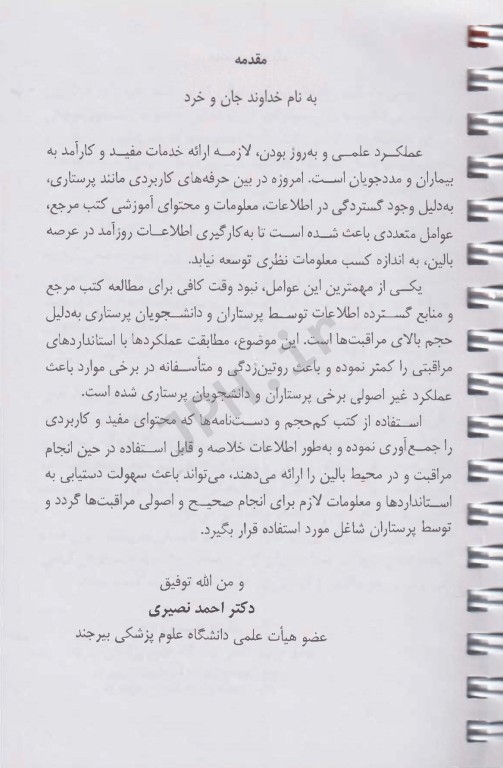 مقدمه
به نام خداوند جان و خرد
عملکرد علمی و به‌روز بودن، لازمه ارائه خدمات مفید و کارآمد به
بیماران و مددجویان است. امروزه در بین حرفه‌های کاربردی مانند پرستاری،
به‌دلیل وجود گستردگی در اطلاعات، معلومات و محتوای آموزشی کتب مرجع،
عوامل متعددی باعث شده است تا به‌کارگیری اطلاعات روزآمد در عرصه
بالین، به اندازه کسب معلومات نظری توسعه نیابد.
یکی از مهمترین این عوامل، نبود وقت کافی برای مطالعه کتب مرجع
و منابع گسترده اطلاعات توسط پرستاران و دانشجویان پرستاری به‌دلیل
حجم بالای مراقبت‌ها است. این موضوع، مطابقت عملکردها با استانداردهای
مراقبتی را کمتر نموده و باعث روتین‌زدگی و متأسفانه در برخی موارد باعث
عملکرد غیر اصولی برخی پرستاران و دانشجویان پرستاری شده است.
استفاده از کتب کم‌حجم و دست‌نامه‌ها که محتوای مفید و کاربردی
را جمع‌آوری نموده و به‌طور اطلاعات خلاصه و قابل استفاده در حین انجام
مراقبت و در محیط بالین را ارائه می‌دهند، می‌تواند باعث سهولت دستیابی به
استانداردها و معلومات لازم برای انجام صحیح و اصولی مراقبت‌ها گردد و
توسط پرستاران شاغل مورد استفاده قرار بگیرد.
و من الله توفیق
دکتر احمد نصیری
عضو هیأت علمی دانشگاه علوم پزشکی بیرجند
JPH.ir